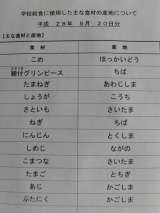 学校給食に使用した主な食材の産地について
平成 28年 6月 20日分
【主な食材と産地】
食材 産地
こめ ほっかいどう
鞘付グリンピース ちば
たまねぎ あわじしま
しょうが こうち
さといも さいたま
ねぎ ちば
にんじん とくしま
しめじ ながの
こまつな さいたま
たまご とちぎ
あじ かごしま
ぶたにく かごしま